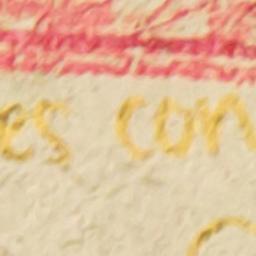 es con